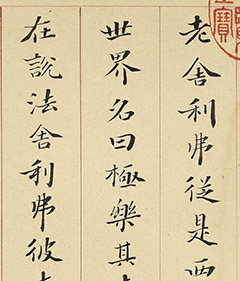 老舍利弗從是西
世界名曰極樂其
在說法舍利弗彼
寶